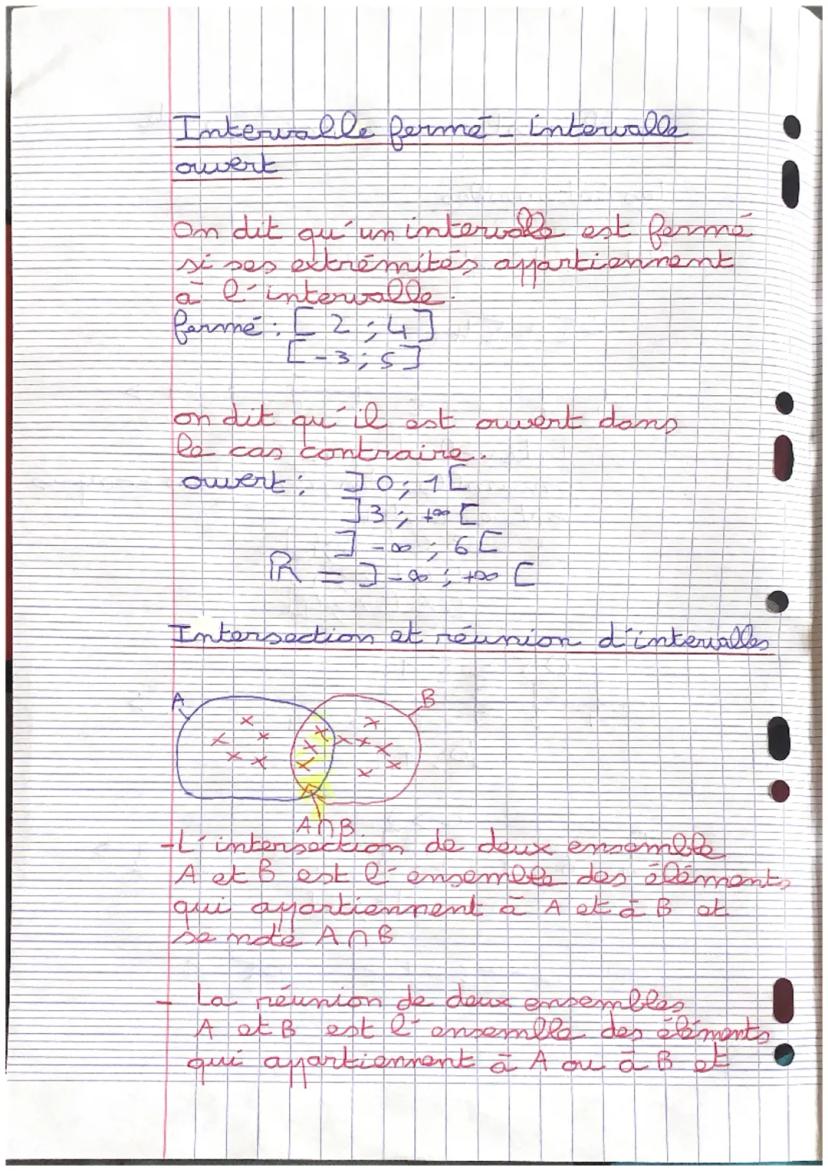 Intervalle fermé - intervalle
ouvert
On dit qu'un intervalle est fermé
si ses extrémités appartiennent
à l'intervalle.
fermé : [ 2 ; 4 ]
[ -3 ; 5 ]
on dit qu'il est ouvert dans
le cas contraire.
ouvert : ] 0 ; 1 [
] 3 ; +∞ [
] -∞ ; 6 [
ℝ = ] -∞ ; +∞ [
Intersection et réunion d'intervalles
A B
A∩B
- L'intersection de deux ensemble
A et B est l'ensemble des éléments
qui appartiennent à A et à B et
se note A∩B
- La réunion de deux ensembles
A et B est l'ensemble des éléments
qui appartiennent à A ou à B et